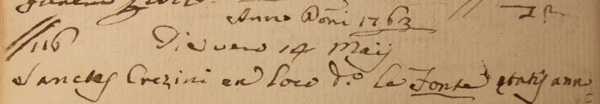 Anno Dñi 1763
116 Die vero 14 Maij
Sanctes Crezini ex loco d.º la Fonte etatis ann